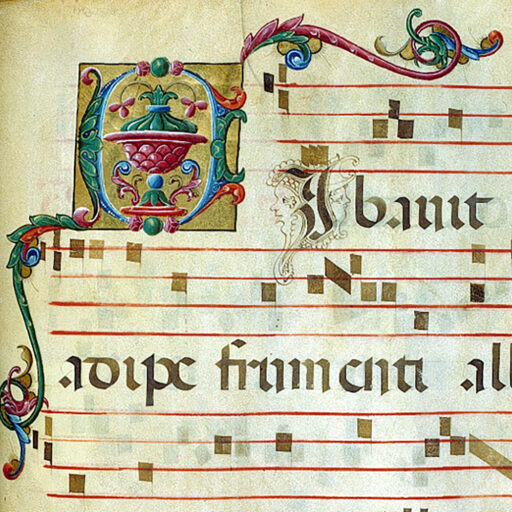 CIbauit
adipe frumenti all